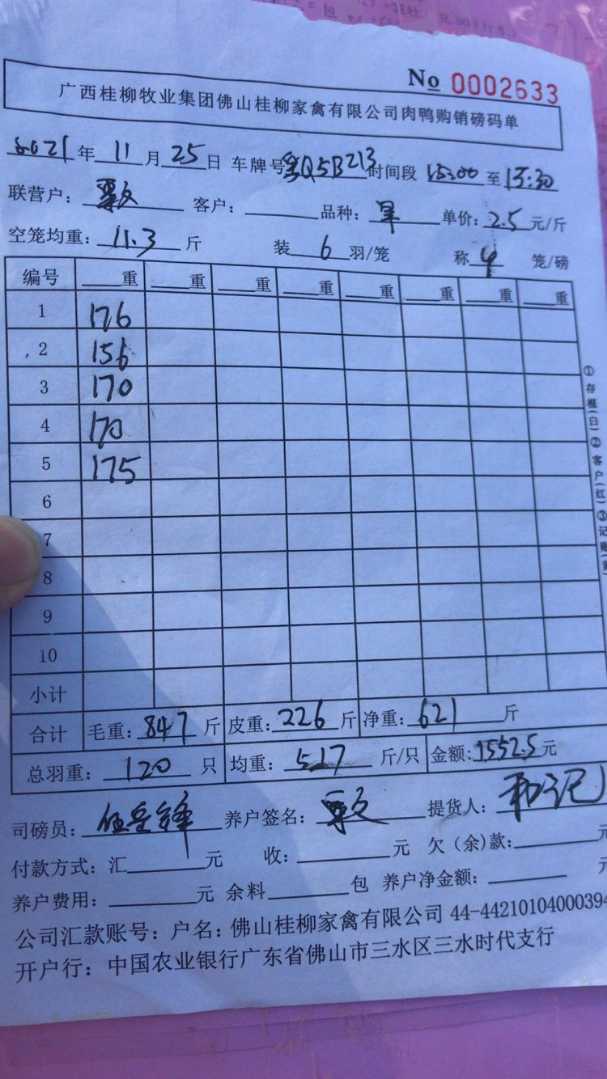 No 0002633
广西桂柳牧业集团佛山桂柳家禽有限公司肉鸭购销磅码单
2021年 11月 25日 车牌号 Q5B213 时间段 15:00 至 15:30
联营户: 客户: 品种: 单价: 2.5 元/斤
空笼均重: 11.3 斤 装 6 羽/笼 称 4 笼/磅
编号 重 重 重 重 重 重 重 重
1 176
2 156
3 170
4 170
5 175
6
7
8
9
10
小计
合计 毛重: 847 斤 皮重: 226 斤 净重: 621 斤
总羽重: 120 只 均重: 5.17 斤/只 金额: 1552.5元
司磅员: 养户签名: 提货人:
付款方式: 汇 元 收: 元 欠(余)款: 元
养户费用: 元 余料 包 养户净金额: 元
公司汇款账号: 户名: 佛山桂柳家禽有限公司 44-44210104000394
开户行: 中国农业银行广东省佛山市三水区三水时代支行
①存根(白)②客户(红)③记账(黄)